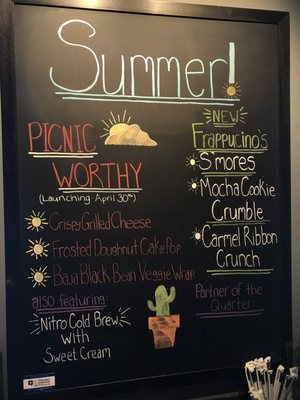 Summer!
PICNIC
WORTHY
(Launching April 30th)
Crispy Grilled Cheese
Frosted Doughnut Cake Pop
Baja Black Bean Veggie Wrap
also featuring:
Nitro Cold Brew
With
Sweet Cream
NEW
Frappucino's
S'mores
Mocha Cookie
Crumble
Carmel Ribbon
Crunch
Partner of the
Quarter: